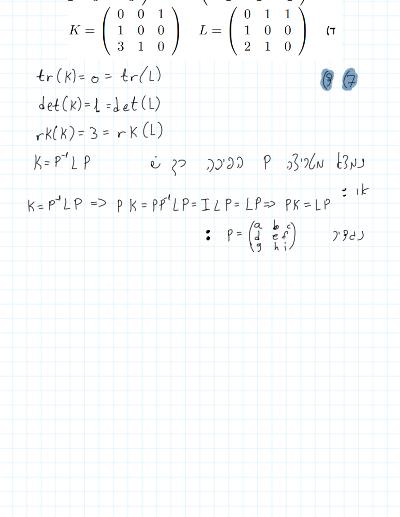 ד) K = ( 0 0 1 / 1 0 0 / 3 1 0 ) L = ( 0 1 1 / 1 0 0 / 2 1 0 )
tr(K)=0=tr(L)
det(K)=1=det(L)
rk(K)=3=rk(L)
נמצא מטריצה P הפיכה כך ש K=P⁻¹LP
אז :
K=P⁻¹LP => PK=PP⁻¹LP=ILP=LP => PK=LP
נגדיר P=( a b c / d e f / g h i ) :